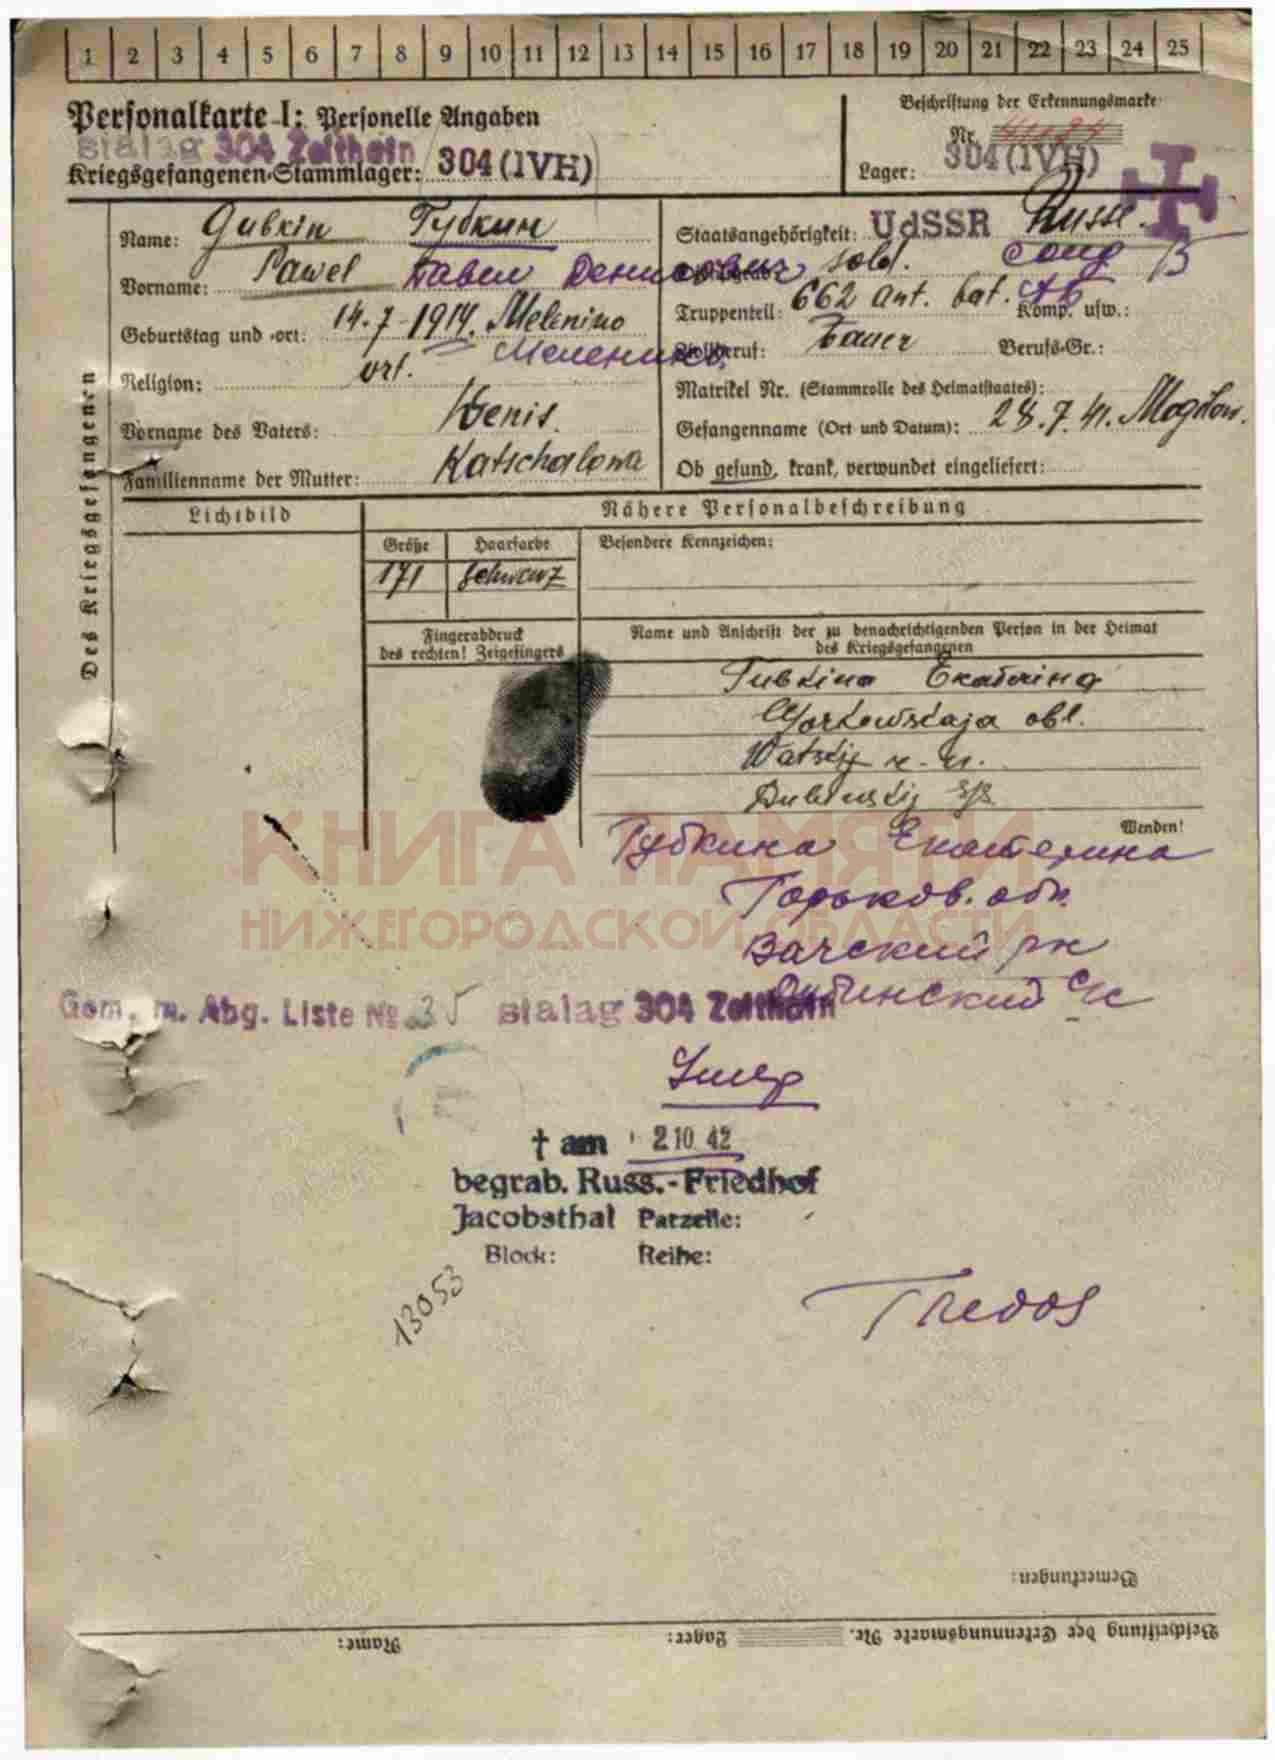 1 2 3 4 5 6 7 8 9 10 11 12 13 14 15 16 17 18 19 20 21 22 23 24 25
Personalkarte I: Personelle Angaben
Stalag 304 Zeithain
Kriegsgefangenen-Stammlager: 304 (IVH)
Beschriftung der Erkennungsmarke
Nr.
Lager: 304 (IVH)
Des Kriegsgefangenen
Name: Gubkin Губкин
Vorname: Pawel Павел Денисович
Geburtstag und -ort: 14.7.1914. Melenino
Меленино
Religion: ort.
Vorname des Vaters: Denis.
Familienname der Mutter: Katschalowa
Staatsangehörigkeit: UdSSR Russe.
sold. солд
Truppenteil: 662 Komp. usw.:
Zivilberuf: Bauer Berufs-Gr.:
Matrikel Nr. (Stammrolle des Heimatstaates):
Gefangenname (Ort und Datum): 28.7.41. Mogilow.
Ob gesund, krank, verwundet eingeliefert:
Lichtbild
Nähere Personalbeschreibung
Größe Haarfarbe Besondere Kennzeichen:
171 schwarz
Fingerabdruck
des rechten! Zeigefingers
Name und Anschrift der zu benachrichtigenden Person in der Heimat
des Kriegsgefangenen
Gubkina Ekaterina
Gorkowskaja obl.
Watskij r-n.
Wenden!
Губкина Екатерина
Горьков. обл.
Вачский рн
КНИГА ПАМЯТИ
НИЖЕГОРОДСКОЙ ОБЛАСТИ
Gem. m. Abg. Liste № 35 Stalag 304 Zeithain
Умер
† am 2 10. 42
begrab. Russ.-Friedhof
Jacobsthal Parzelle:
Block: Reihe:
13053
Bemerkungen:
Name: Lager: Beschriftung der Erkennungsmarke Nr.